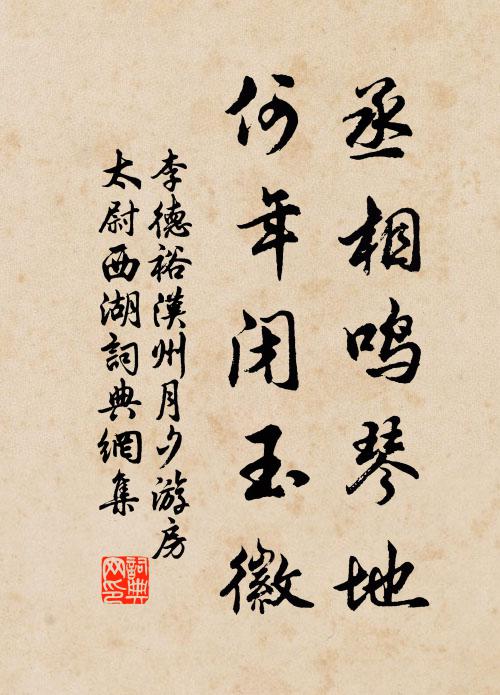 丞相鸣琴地
何年闭玉徽
李德裕漢州月夕游房
太尉西湖詞典網集
詞典网印